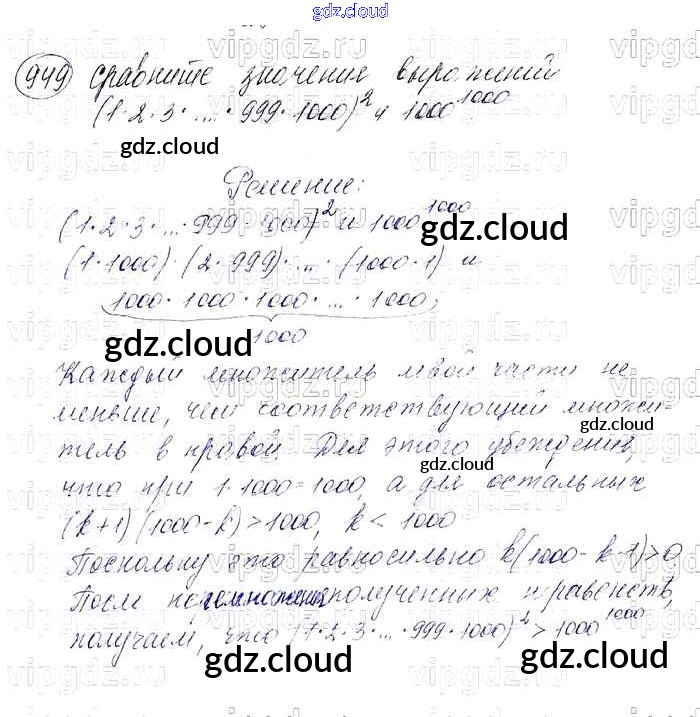 gdz.cloud
949 Сравните значение выражений
(1·2·3·...·999·1000)² и 1000¹⁰⁰⁰
gdz.cloud
Решение:
(1·2·3·...·999·1000)² и 1000¹⁰⁰⁰
gdz.cloud
(1·1000)·(2·999)·...·(1000·1) и
1000·1000·1000·...·1000,
1000
gdz.cloud
Каждый множитель левой части не
меньше, чем соответствующий множи-
тель в правой. Для этого убеждения,
gdz.cloud
что при 1·1000=1000, а для остальных
(k+1)(1000-k)>1000, k<1000
Поскольку это равносильно k(1000-k-1)>0
После перемножения полученных неравенств,
получаем, что (1·2·3·...·999·1000)²>1000¹⁰⁰⁰
gdz.cloud gdz.cloud